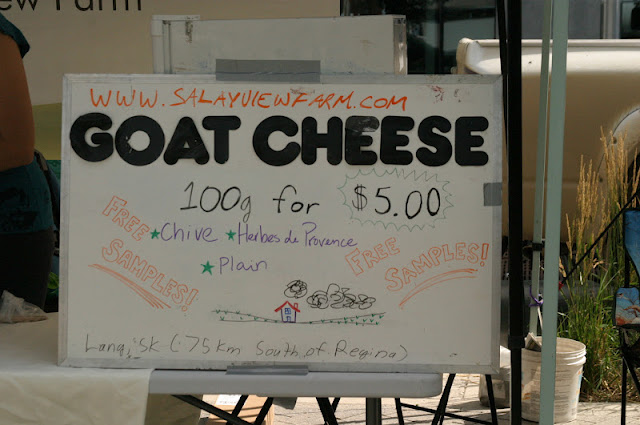 ew Farm
WWW.SALAYVIEWFARM.COM
GOAT CHEESE
100g for $5.00
FREE SAMPLES!
★Chive ★Herbes de Provence
★Plain
FREE SAMPLES!
Lang, SK (75km South of Regina)